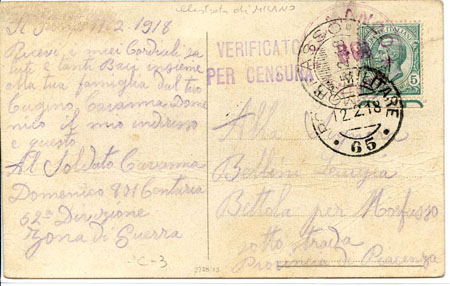 Illustrata di MILANO
11. 2. 1918
Riceve i miei Cordiali sa
luti e tanti Baci insieme
alla tua famiglia dal tuo
Cugino Cavanna Dome
nico il mio indirizzo
e questo
Al Soldato Cavanna
Domenico 831 Centuria
62a Divizione
Zona di Guerra
C-3
VERIFICATO
PER CENSURA
POSTA MILITARE
12.2.18
65
5
Alla
Bellini Luigia
Bettola per
sotto strada
Provincia Piacenza